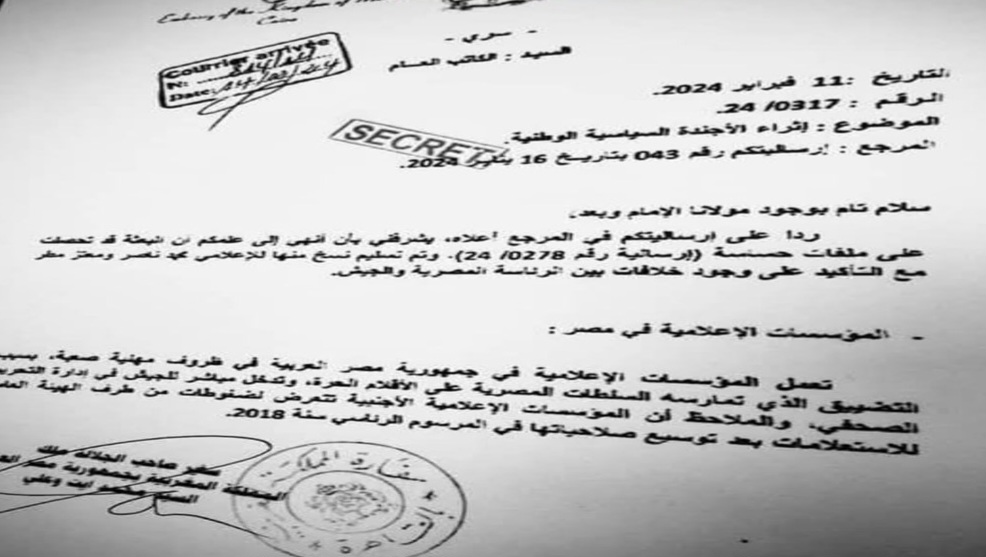 Embassy of the Kingdom of
Cairo
- سري -
السيد : الكاتب العام
Courrier arrivée
N:
Date:
التاريخ :11 فبراير 2024.
الرقم : 0317/ 24.
SECRET
الموضوع : إثراء الأجندة السياسية الوطنية.
المرجع : إرساليتكم رقم 043 بتاريخ 16 يناير 2024.
سلام تام بوجود مولانا الإمام وبعد،
ردا على إرساليتكم في المرجع أعلاه، يشرفني بأن أنهي إلى علمكم أن البعثة قد تحصلت
على ملفات حساسة ((إرسالية رقم 0278/ 24). وتم تسليم نسخ منها للإعلامي محمد ناصر ومعتز مطر
مع التأكيد على وجود خلافات بين الرئاسة المصرية والجيش.
- المؤسسات الإعلامية في مصر :
تعمل المؤسسات الإعلامية في جمهورية مصر العربية في ظروف مهنية صعبة، بسبب
التضييق الذي تمارسه السلطات المصرية على الأقلام الحرة، وتدخل مباشر للجيش في إدارة التحرير
الصحفي، والملاحظ أن المؤسسات الإعلامية الأجنبية تتعرض لضغوطات من طرف الهيئة العامة
للاستعلامات بعد توسيع صلاحياتها في المرسوم الرئاسي سنة 2018.
سفير صاحب الجلالة ملك
المملكة المغربية بجمهورية مصر
السيد محمد ايت وعلي
سفارة المملكة
بالقاهرة